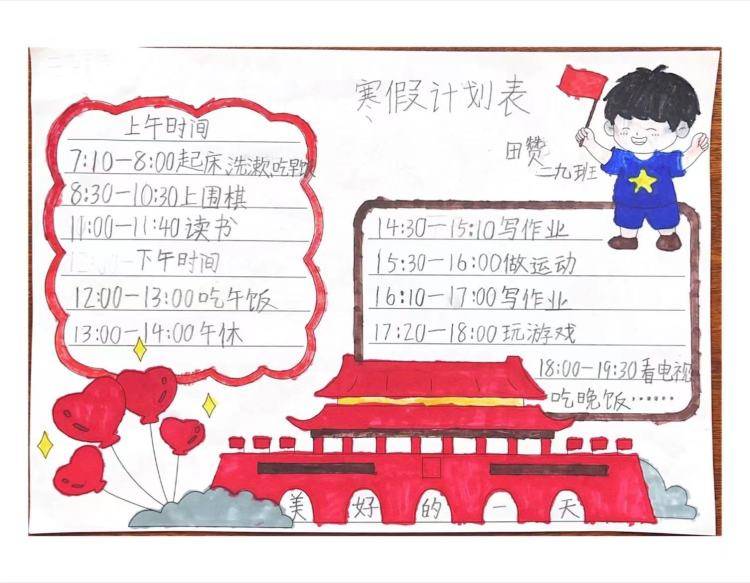 寒假计划表
田赞
二九班
上午时间
7:10—8:00起床、洗漱、吃早饭
8:30—10:30上围棋
11:00—11:40读书
下午时间
12:00—13:00吃午饭
13:00—14:00午休
14:30—15:10写作业
15:30—16:00做运动
16:10—17:00写作业
17:20—18:00玩游戏
18:00—19:30看电视
吃晚饭,……
美好的一天